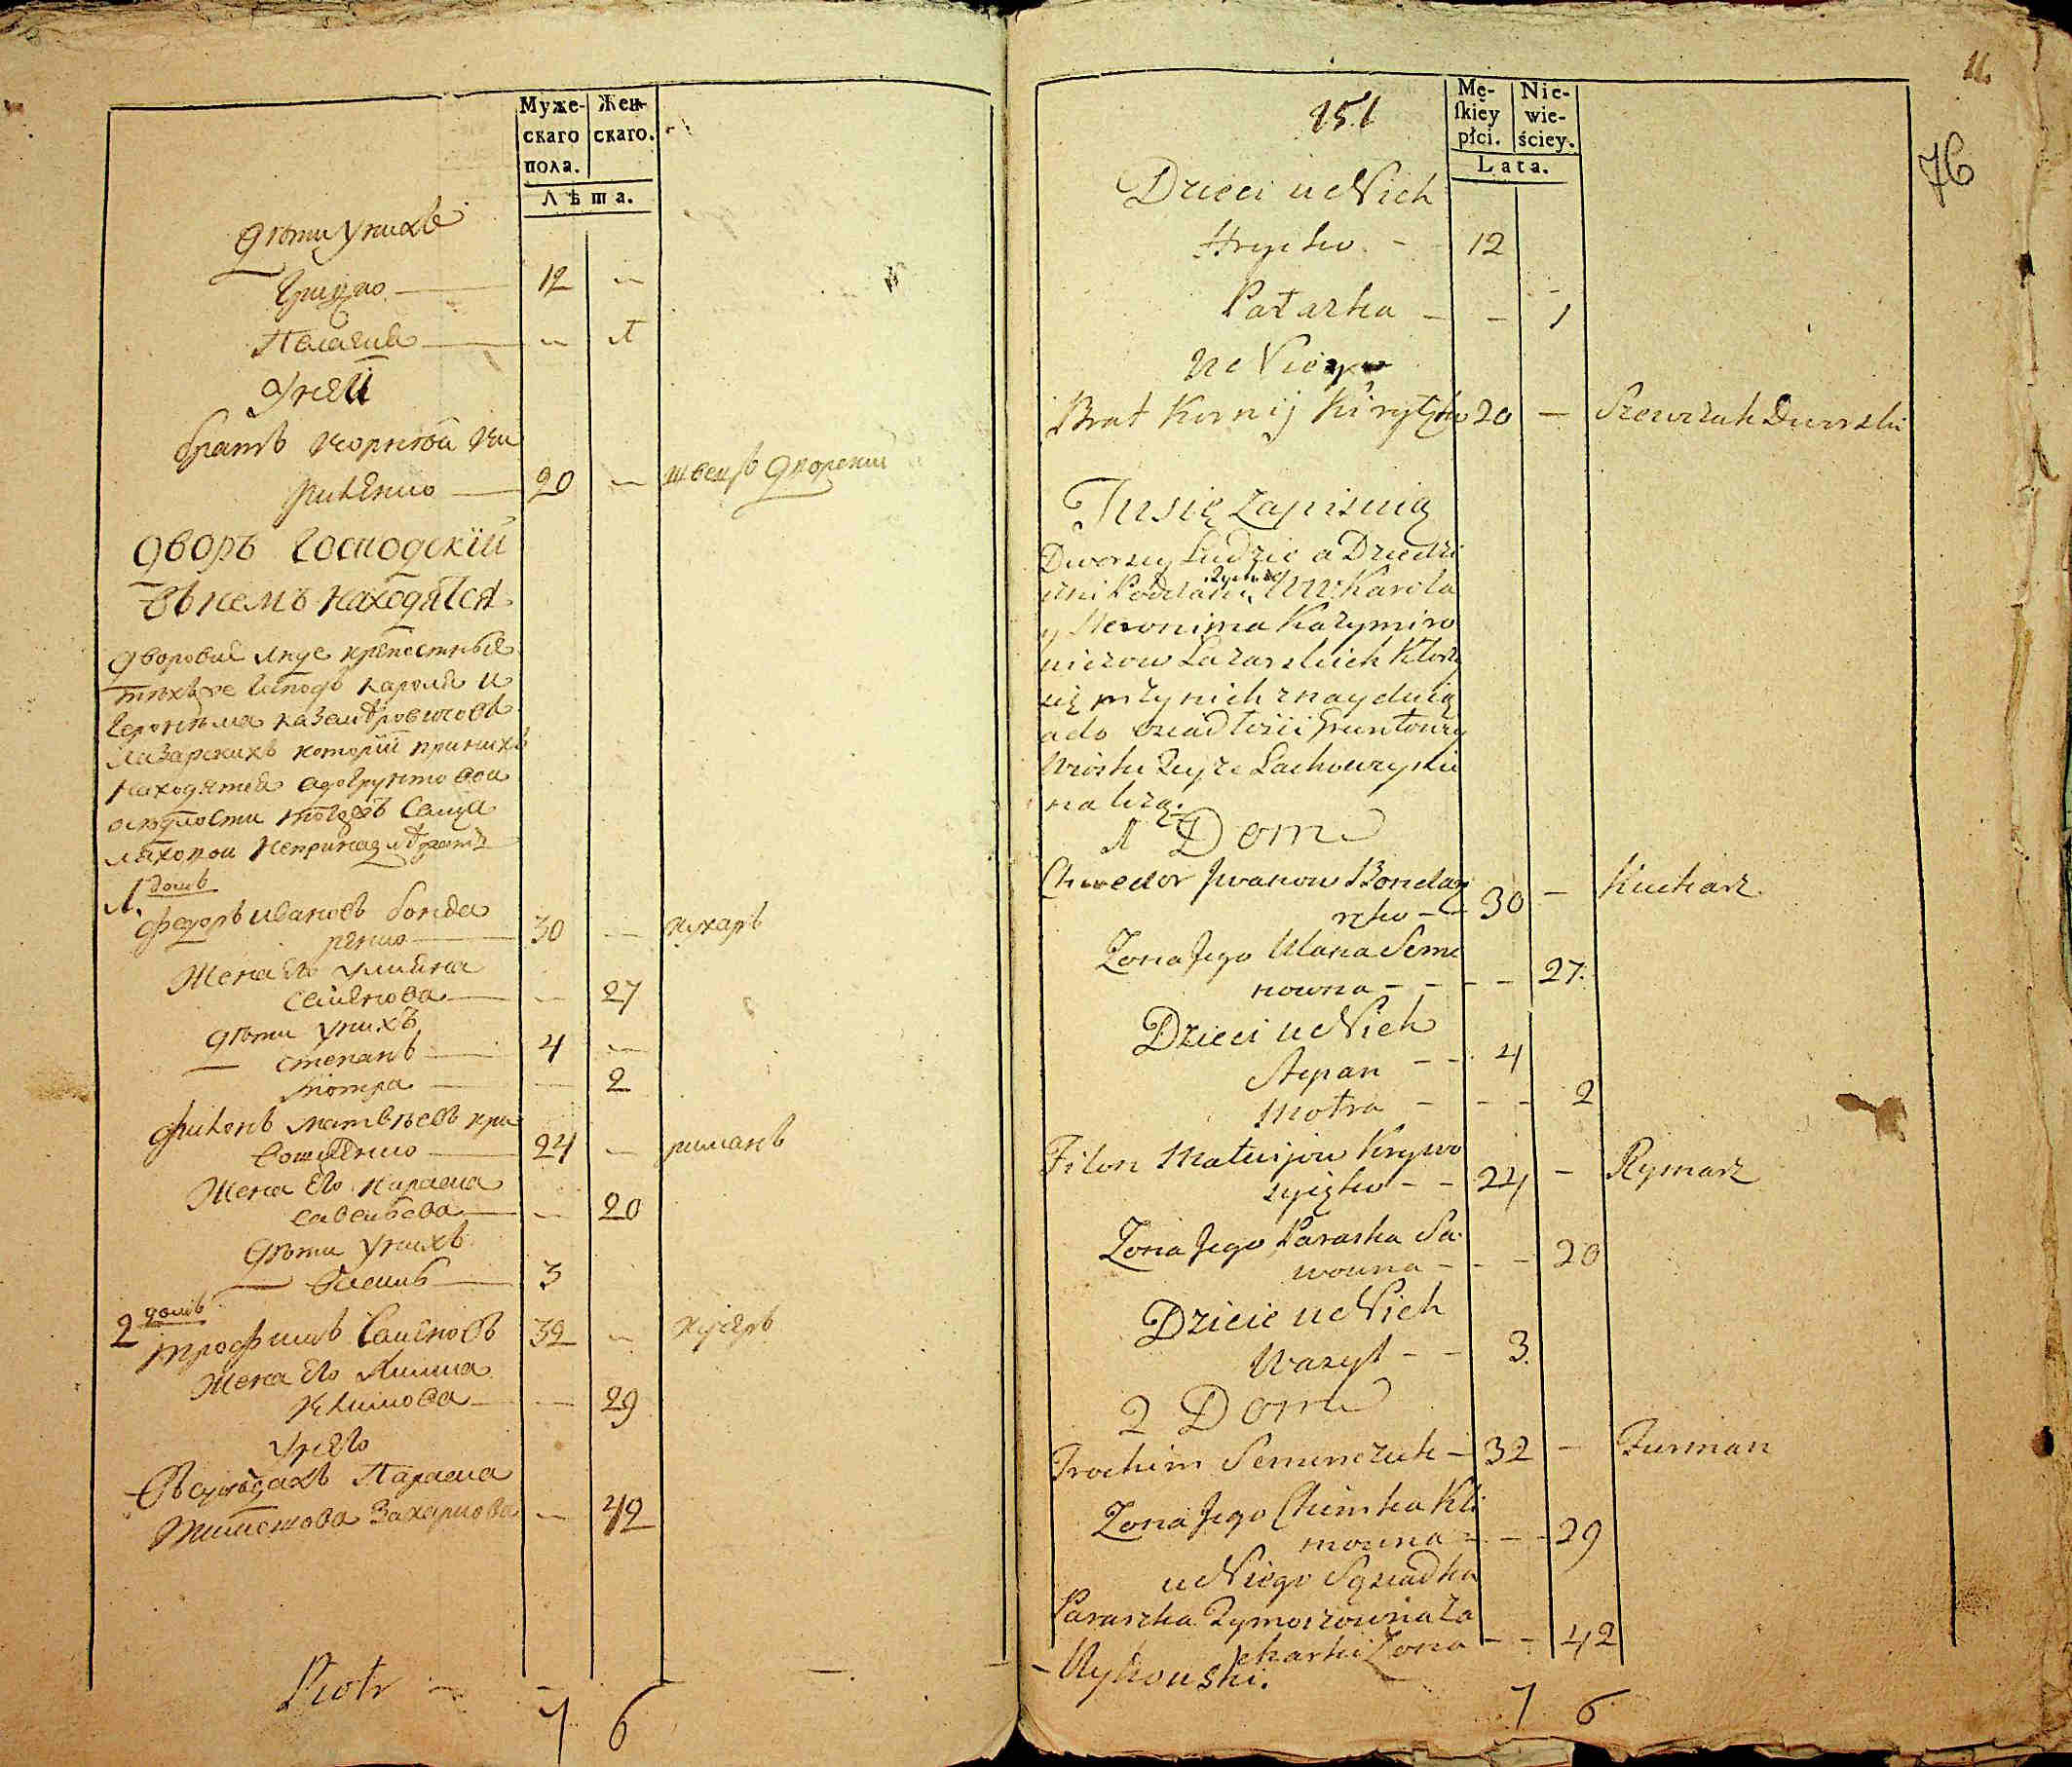 Муже-
скаго
пола.
Жен-
скаго.
Лѣта.
Дѣти у нихъ
Грицко 12 —
Палагия — 1
У ней
братъ Корнѣй Ки
риленко 20 — швецъ дворский
Дворъ Господскiй
въ немъ находятся
дворовые люде крѣпостные
тѣхъ же Господъ Кароля и
Геронима Казимѣровичовъ
Лазарскихъ которiи при нихъ
находятся а до грунтовой
осѣдлости тогожъ селця
Ляховой не принадлѣжатъ
1. домъ
Федоръ Ивановъ Бонда
ренко 30 — кухаръ
Жена его Улияна
Семенова — 27
Дѣти у нихъ
Степанъ 4 —
Мотра — 2
Филонъ Матвѣевъ Кри
вошиенко 24 — риманъ
Жена его Параска
Савельева — 20
Дѣти у нихъ
Василь 3
2 домъ
Трофимъ Семеновъ 32 — кучеръ
Жена его Химка
Климова — 29
У него
въ сусѣдахъ Параска
Тимошова Захаркова — 42
Piotr
7 6
11.
76
151
Mę-
ſkiéy
płci.
Nie-
wie-
ściey.
Lata.
Dzieci u Nich
Hryćko - 12
Pałazka - - 1
u Niey
Brat Kornij Kiryłęko 20 — Szewczuk Dworski
Tu się zapisuią
Dworscy Ludzie a Dziedzi
czni Poddani WW: Karola
y Heronima Kazymiro
wiczow Lazarskich Ktorzy
się przy nich znayduią
a do osiadłości Gruntowey
Wioski Teyże Lachowczyski
należą.
1 Dom
Chwedor Iwanow Bondar
czko - - 30 — Kucharz
Zona Jego Ulana Seme
nowna - - - - 27.
Dzieci u Nich
Stepan - - 4
Motra - - - 2
Filon Matwijow Krywo
szyięko - - 24 - Rymarz
Zona Jego Paraska Sa
wowna - - - 20
Dziecie u Nich
Wasyl - - 3.
2 Dom
Trochim Semenczuk - 32 - Furman
Zona Jego Chimka Kli
mowna - - - 29
u Niego Sąsiadka
Paraszka Tymoszowna Za
charki Zona - - 42
- Wykowski.
7 6